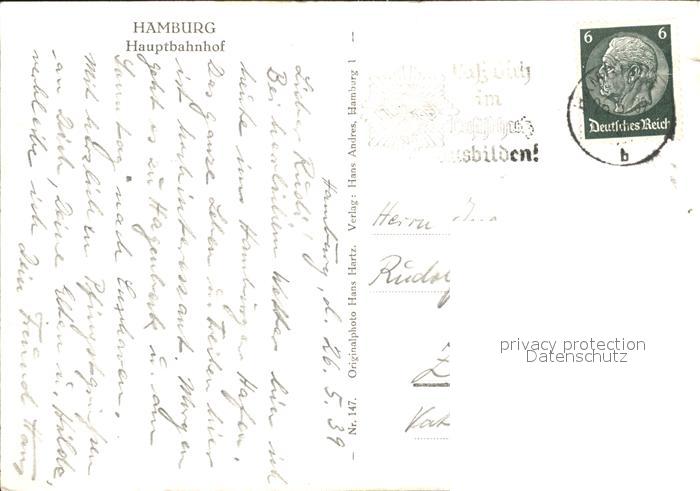 HAMBURG
Hauptbahnhof
Hamburg, d. 26.5.39
Lieber Rudi!
Bei herrlichem Wetter bin ich
heute im Hamburger Hafen.
Das ganze Leben u. Treiben hier
ist sehr interessant. Morgen
geht es zu Hagenbeck u. am
Sonntag nach Cuxhaven.
Mit herzlichen Pfingstgrüßen
an Dich, Deine Eltern u. Hilde,
verbleibe ich Dein Freund Hans
Nr. 147. Originalphoto Hans Hartz. Verlag: Hans Andres, Hamburg 1
Laß Dich
im
ausbilden!
6 6
Deutsches Reich
b
Herrn
Rudolf
privacy protection
Datenschutz